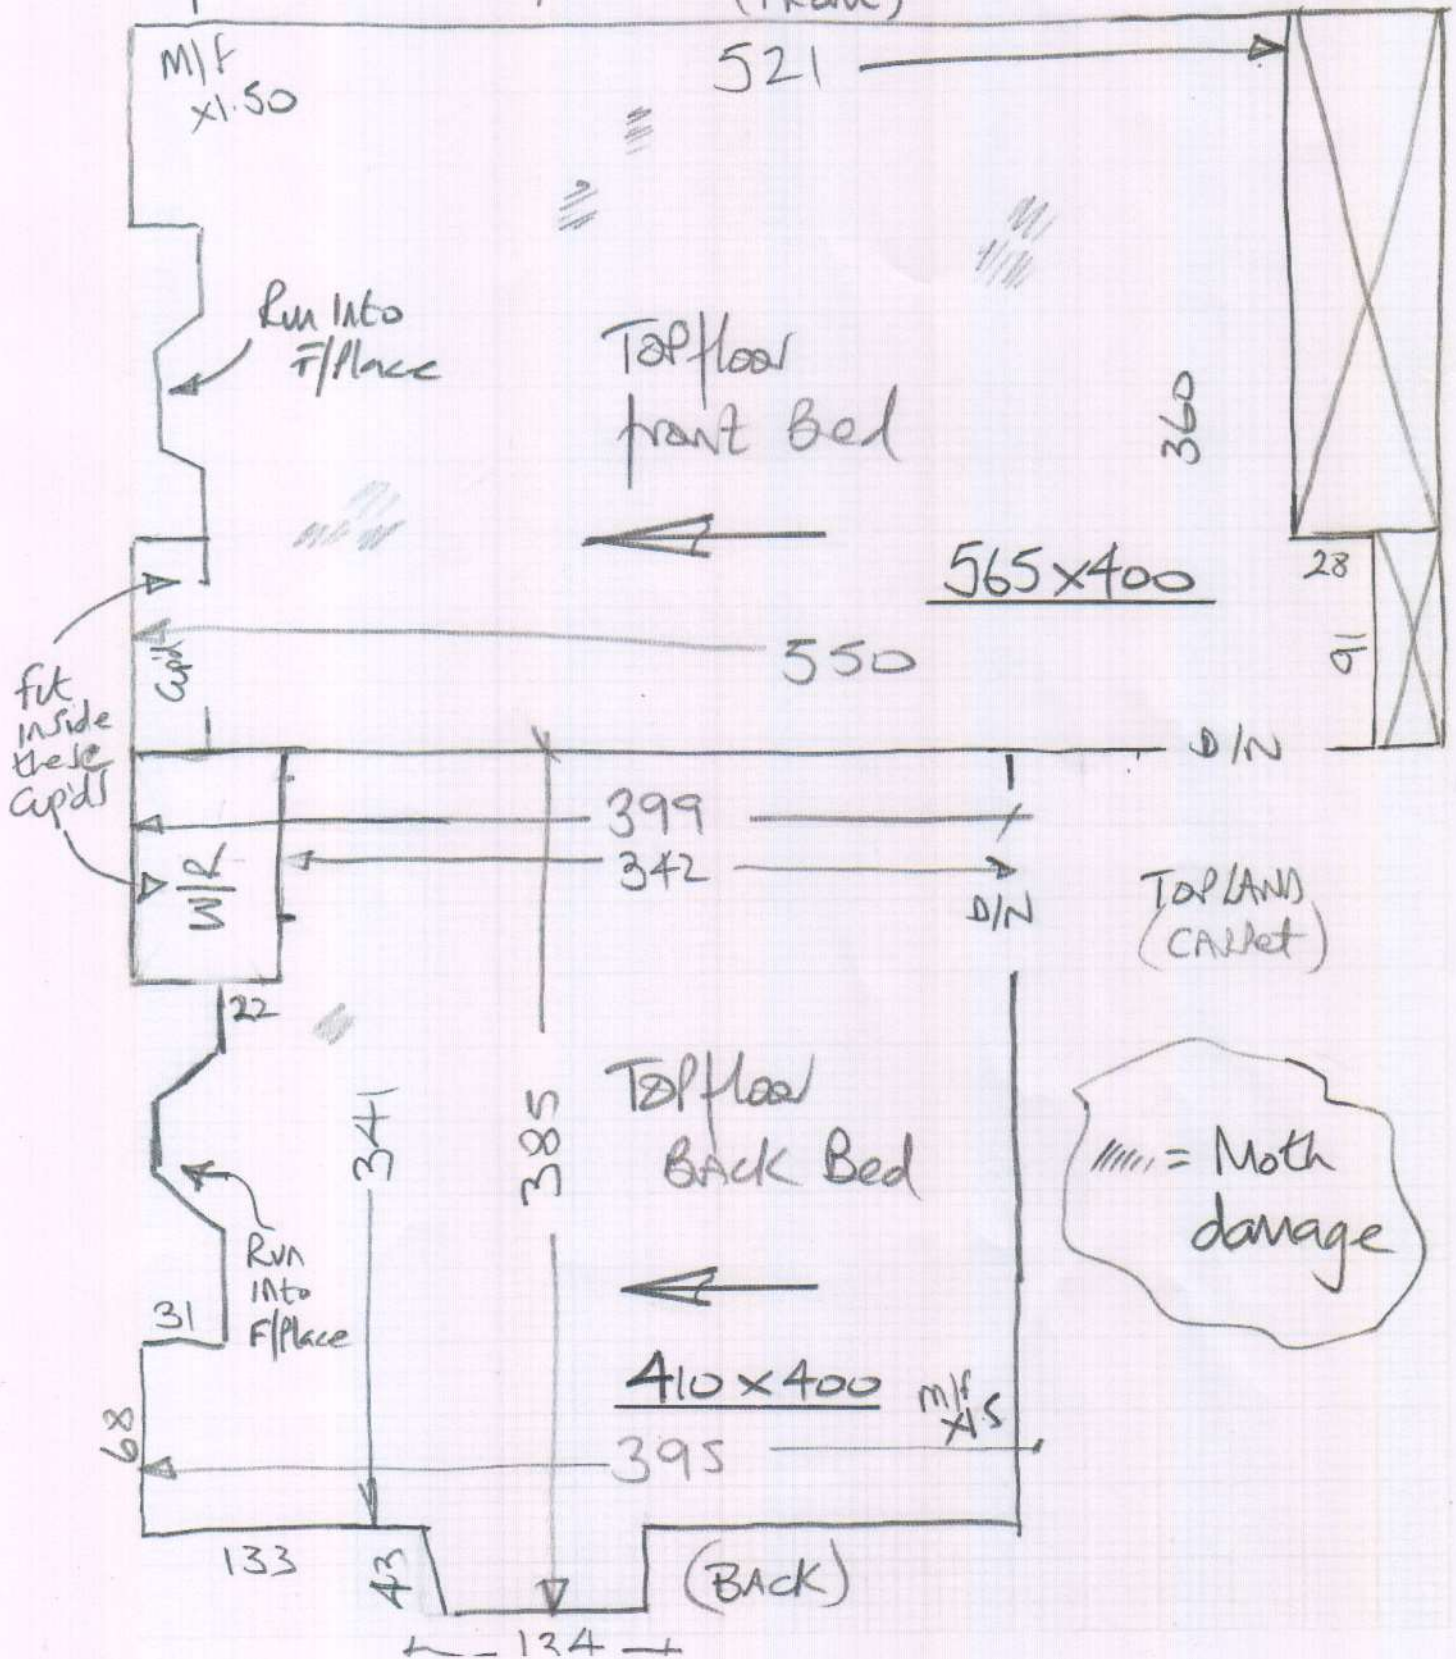 (FRONT)
M/F
x1.50
521
Run Into
F/Place
Top floor
front Bed
360
565 x 400
28
91
550
Cup'd
fit
inside
these
Cup'ds
D/N
399
342
W/R
D/N
TOP LAND
(CARPet)
22
341
385
Top floor
BACK Bed
= Moth
damage
Run
Into
F/Place
31
410 x 400
M/F
x1.5
68
395
133
43
(BACK)
134